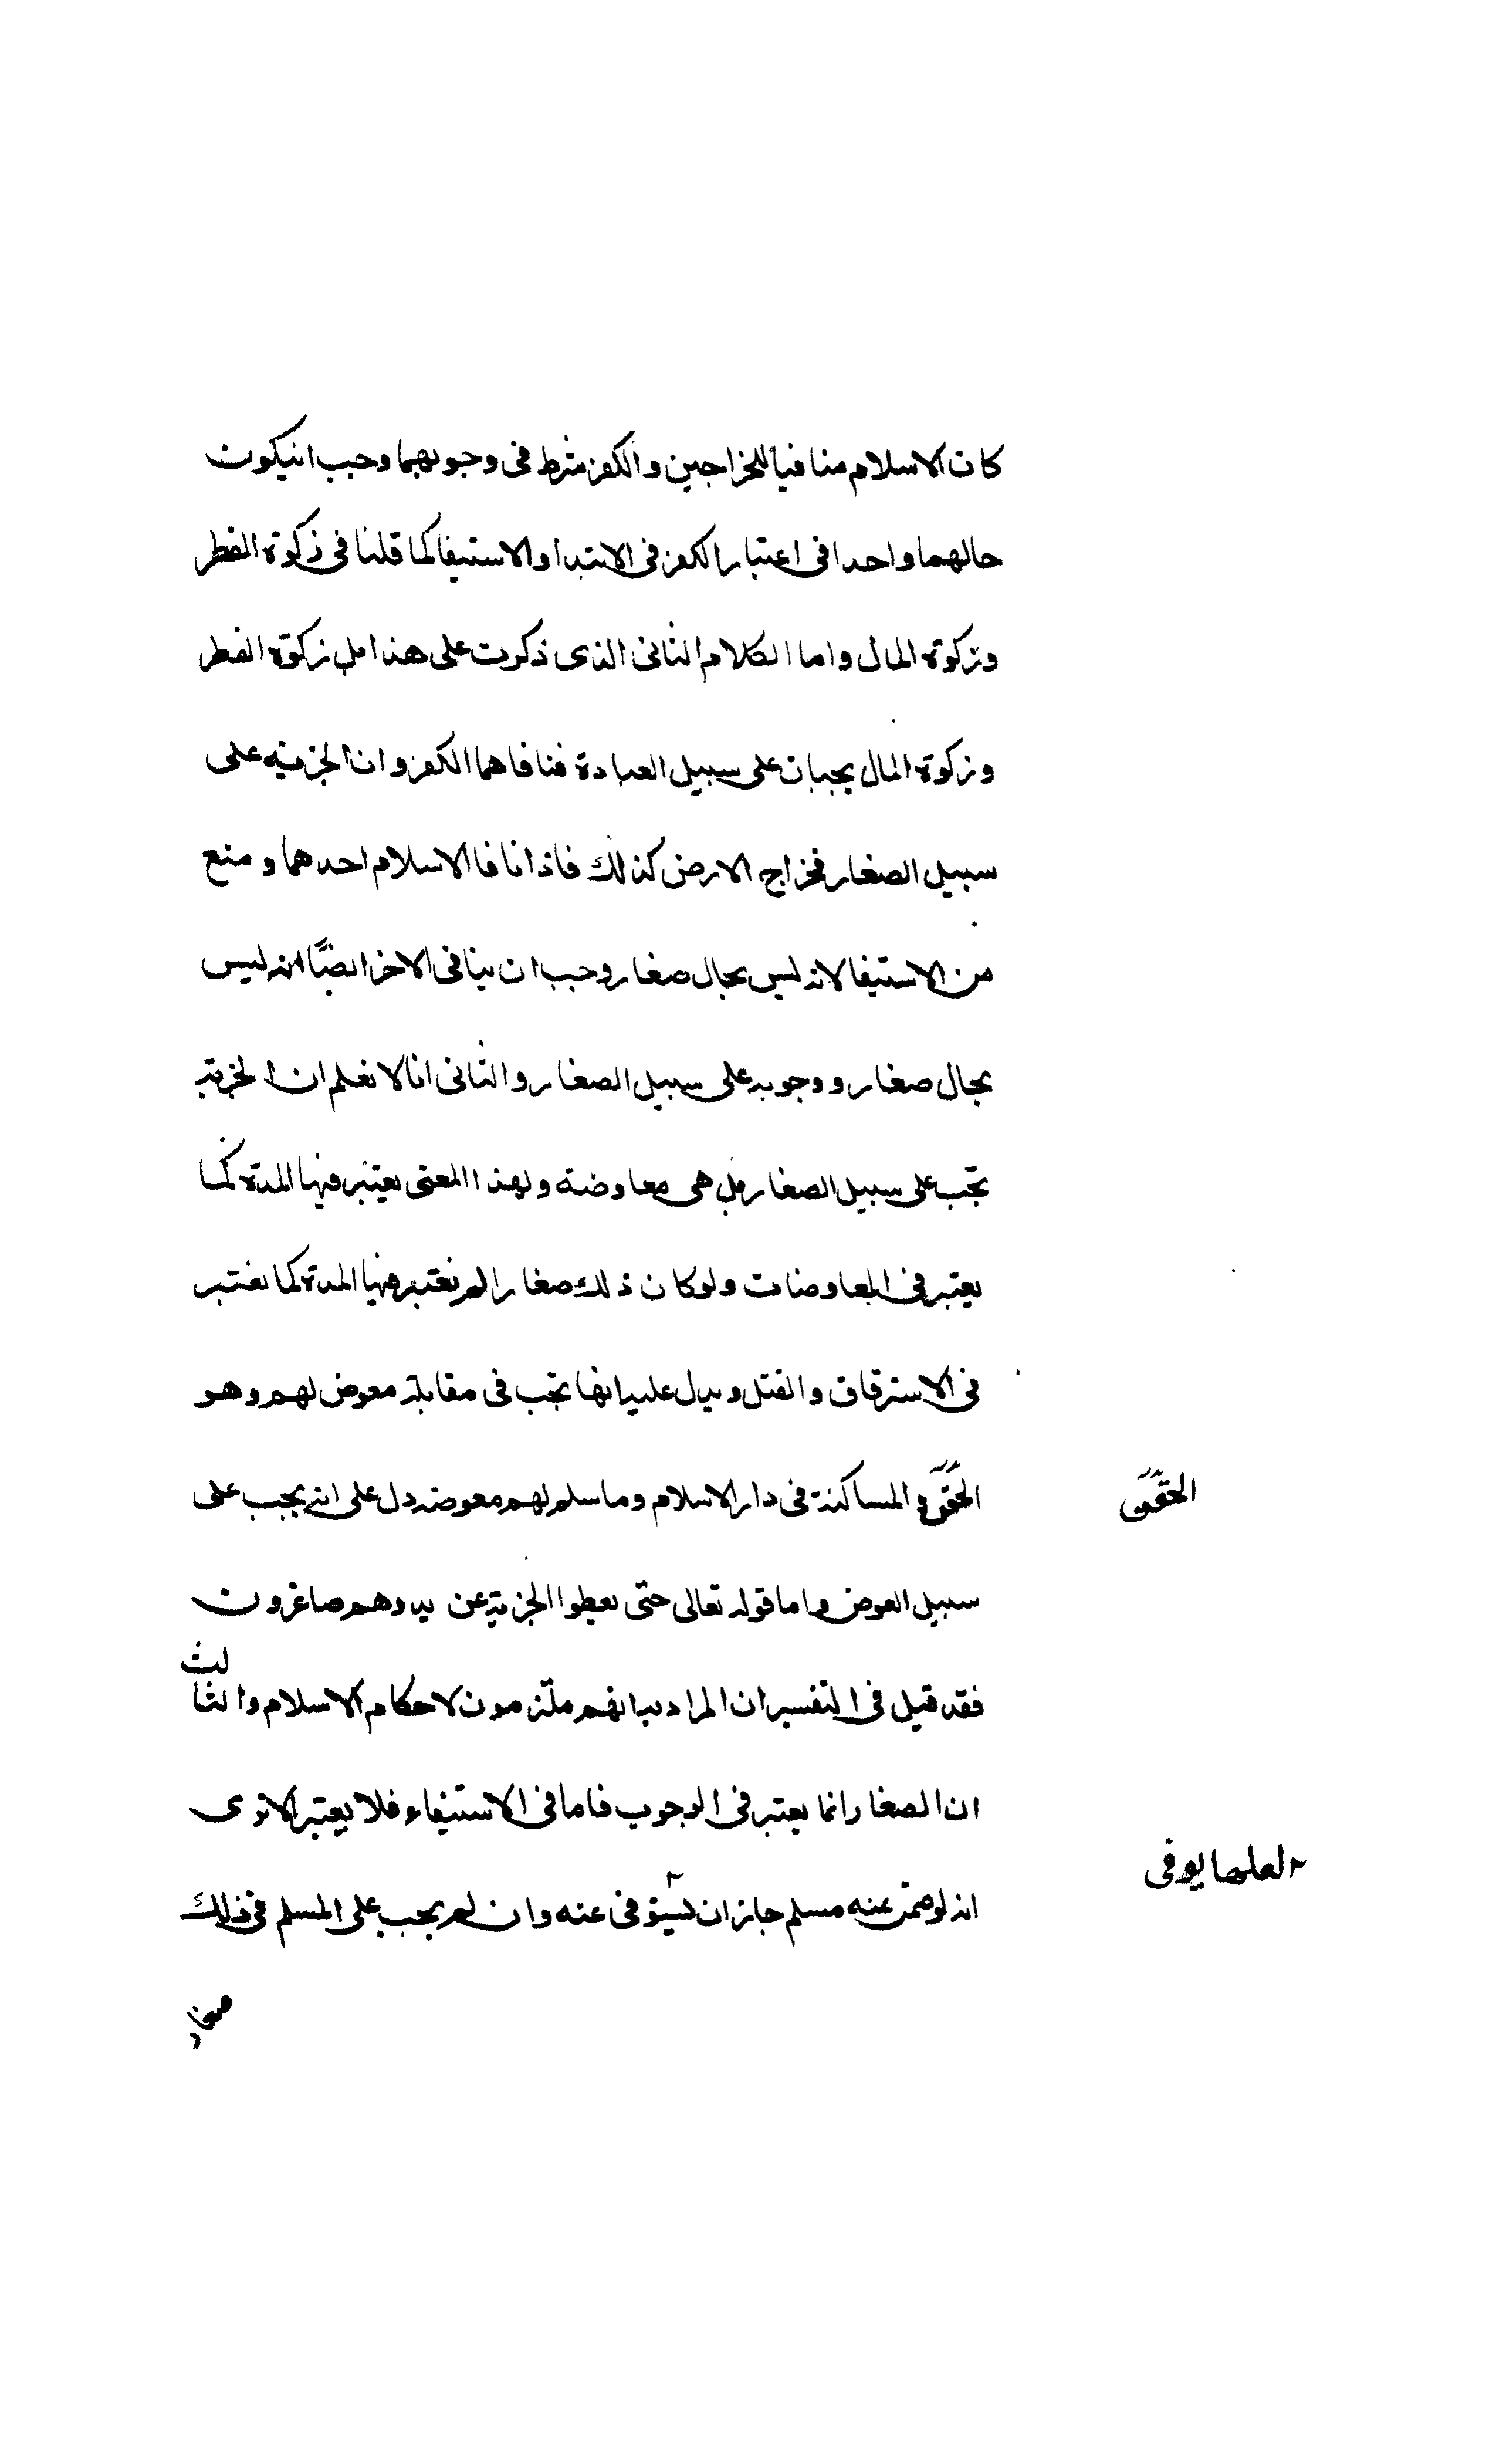 كان الاسلام منافيا للخراجين والكفر شرط فى وجوبهما وجب انيكون
حالهما واحدا فى اعتبار الكفر فى الابتدا والاستيفا كما قلنا فى زكوة الفطر
وزكوة المال واما الكلام الثانى الذى ذكرت على هذا مل زكوة الفطر
وزكوة المال يجبان على سبيل العبادة فنافاهما الكفر وان الجزية على
سبيل الصغار فخراج الارض كذلك فاذا نافا الاسلام احدهما ومنع
من الاستيفا لانه ليس بحال صغار وجب ان ينافى الاخر ايضًا لانه ليس
بحال صغار ووجوبه على سبيل الصغار والثانى انا لا نعلم ان الجزية
تجب على سبيل الصغار بل هى معاوضة ولهذا المعنى يعتبر فيها المدة كما
يعتبر فى المعاوضات ولو كان ذلك صغارا لم نعتبر فيها المدة كما نعتبر
فى الاسترقاق والقتل ويدل عليه انها تجب فى مقابلة معوض لهم وهو
الحقن والمساكنة فى دار الاسلام وما سلم لهم معوضه دل على انه يجب على
الحقن
سبيل العوض واما قوله تعالى حتى يعطوا الجزية عن يد وهم صاغرون
فقد قيل فى التفسير ان المراد به انهم ملتزمون لاحكام الاسلام والثالث
ان الصغار انما يعتبر فى الوجوب فاما فى الاستيفاء فلا يعتبر الا ترى
لعلها يوفى
انه لو ضمن عنه مسلم جاز ان يستوفى عنه وان لم يجب على المسلم فى ذلك
صغار